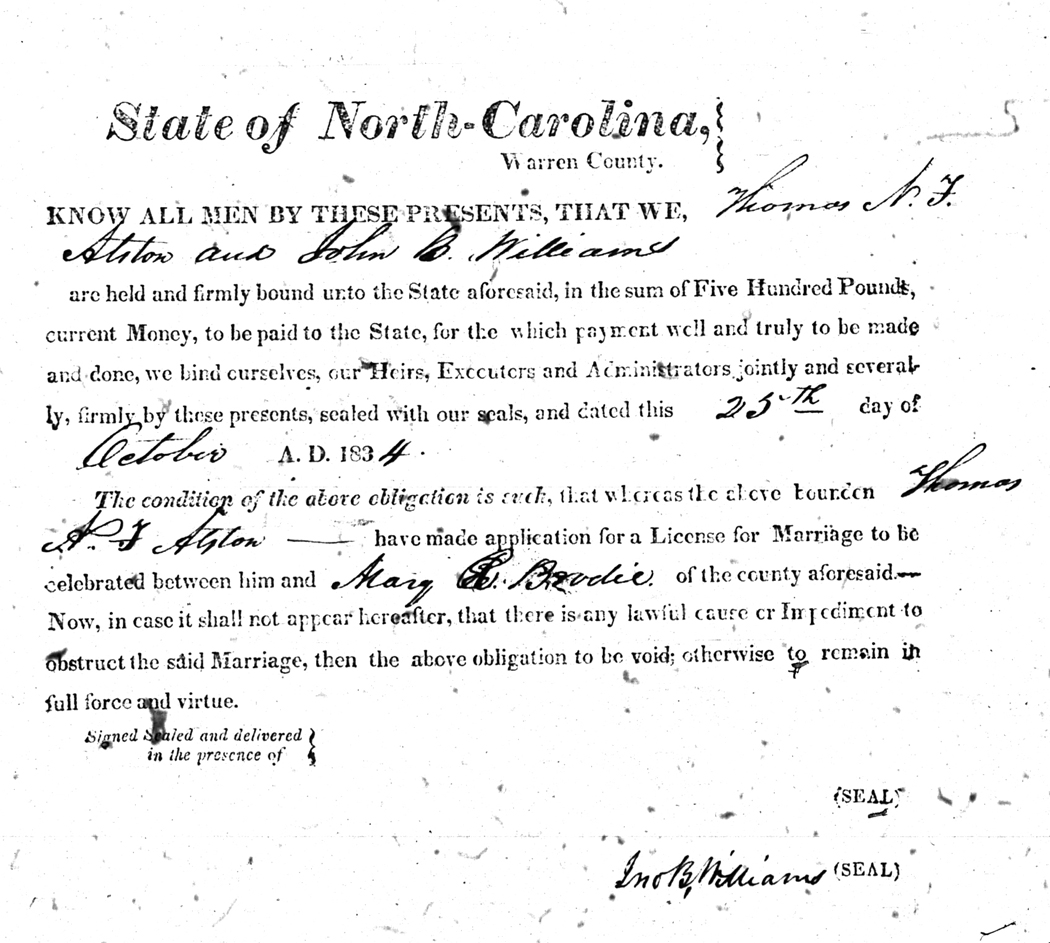 State of North-Carolina,
Warren County.
KNOW ALL MEN BY THESE PRESENTS, THAT WE, Thomas N. F.
Alston and John B. Williams
are held and firmly bound unto the State aforesaid, in the sum of Five Hundred Pounds,
current Money, to be paid to the State, for the which payment well and truly to be made
and done, we bind ourselves, our Heirs, Executors and Administrators jointly and several-
ly, firmly by these presents, sealed with our seals, and dated this 25th day of
October A. D. 1834.
The condition of the above obligation is such, that whereas the above bounden Thomas
N. F Alston — have made application for a License for Marriage to be
celebrated between him and Mary E. Brodie. of the county aforesaid.—
Now, in case it shall not appear hereafter, that there is any lawful cause or Impediment to
obstruct the said Marriage, then the above obligation to be void; otherwise to remain in
full force and virtue.
Signed Sealed and delivered
in the presence of
(SEAL)
Jno B, Williams (SEAL)